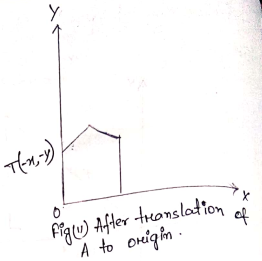 Y
T(-x,-y)
O
X
Fig(ii) After translation of
A to origin.